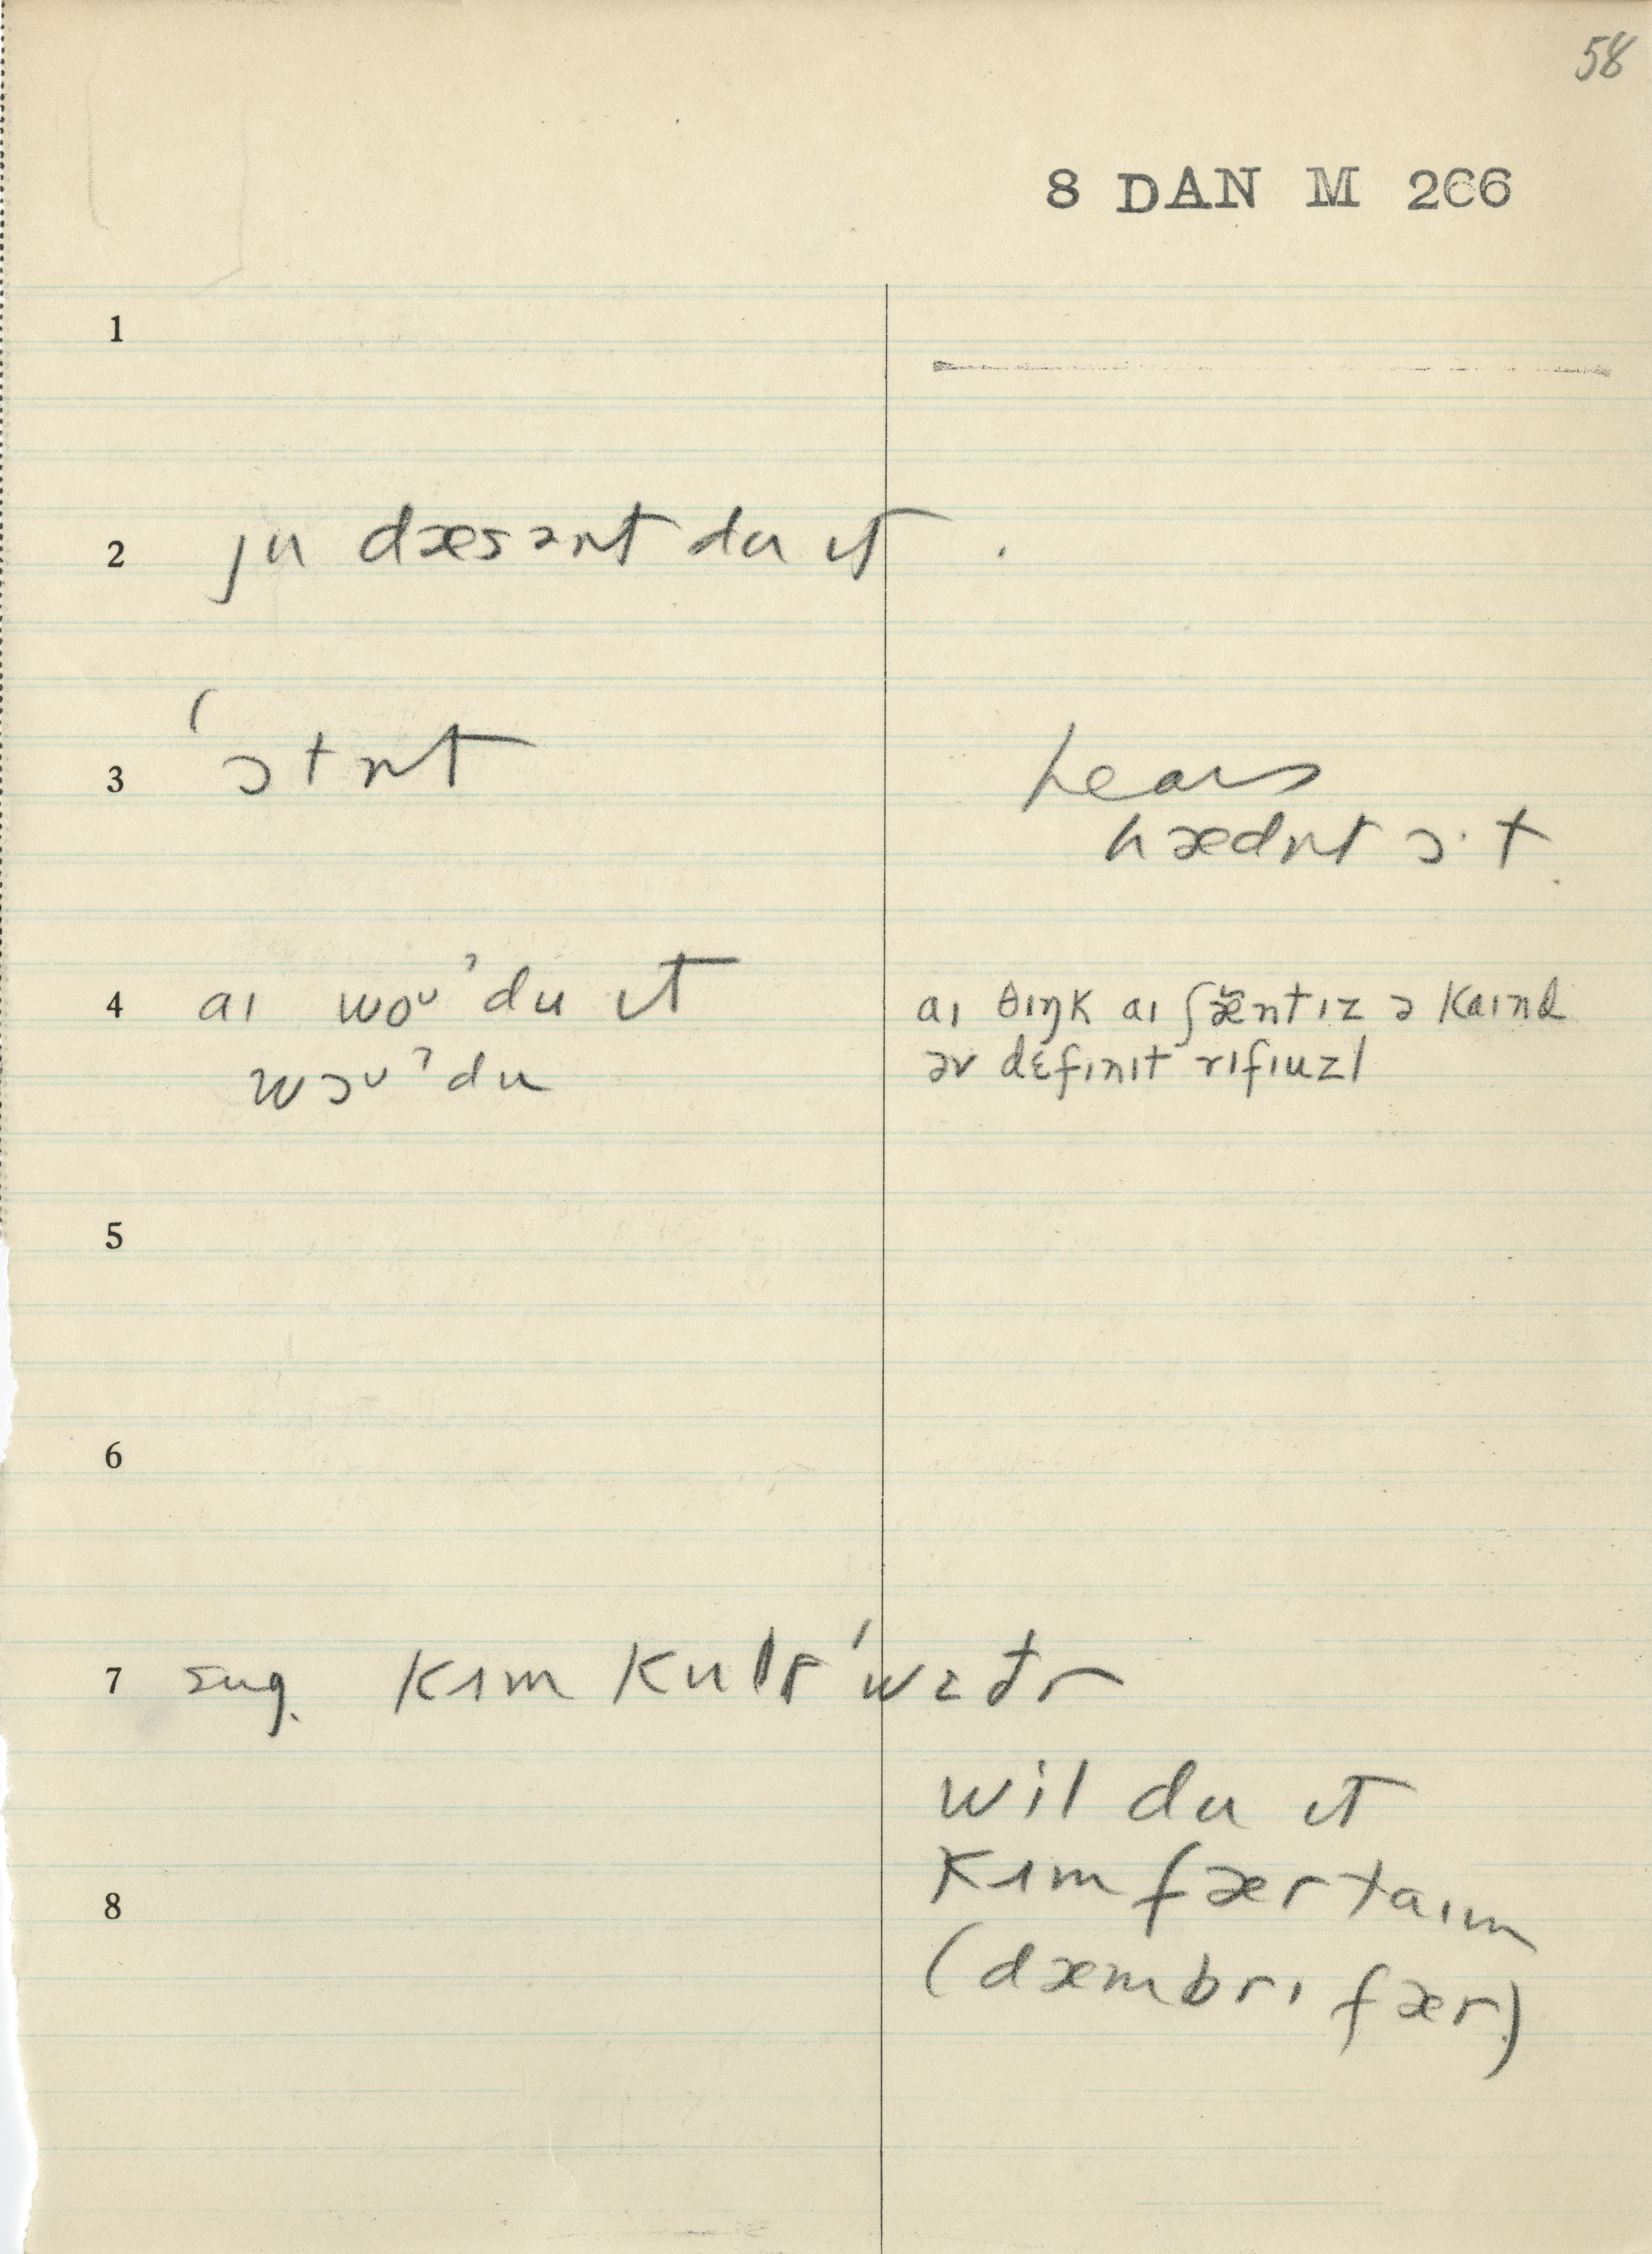 58
8 DAN M 266
1
2 ju dæsənt du ɪt
3 ˈɔtnt
hears
hædnt ɔ·t
4 aɪ woᴜˀdu ɪt
wɔᴜˀdu
aɪ θɪŋk aɪ ʃæ̆ntɪz ə kaɪnd
əv dɛfɪnɪt rɪfɪuzl
5
6
7 sug. kɪm
wil du ɪt
8
kɪm fær taɪm
(dæmbrɪ fær)